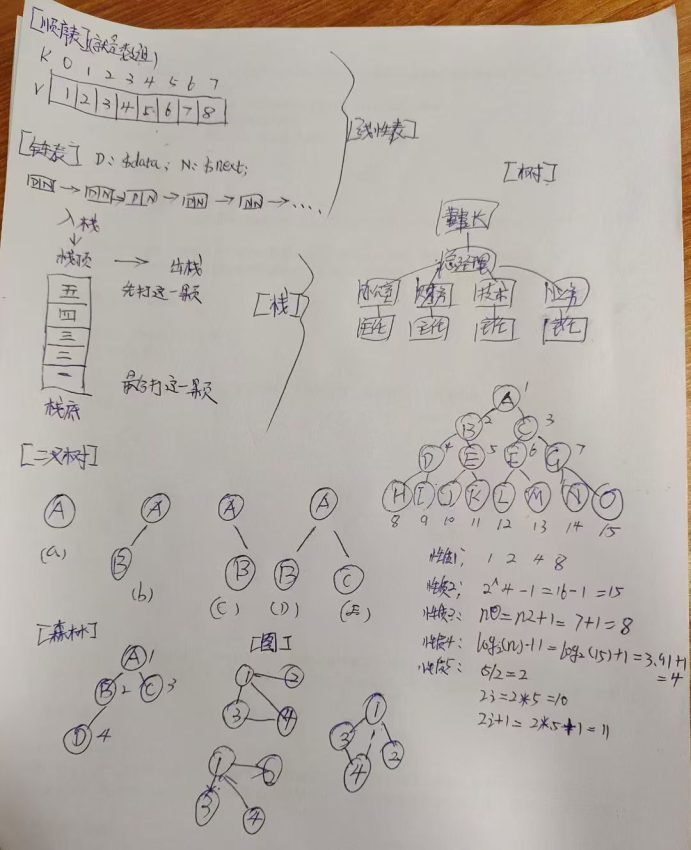 [顺序表](就是数组)
K 0 1 2 3 4 5 6 7
V 1 2 3 4 5 6 7 8
[线性表]
[链表] D: $data; N: $next;
D N → D N → D N → D N → N N → ....
入栈
栈顶 → 出栈
五 先打这一颗
四
三
二
一 最后打这一颗
栈底
[栈]
[树]
董事长
总经理
办公室 财务 技术 业务
主任 主任 主任 主任
A 1
B 2 C 3
D 4 E 5 F 6 G 7
H I J K L M N O
8 9 10 11 12 13 14 15
[二叉树]
A A A A
B B B C
(a) (b) (c) (D) (E)
性质1: 1 2 4 8
性质2: 2^4-1=16-1=15
性质3: n0=n2+1=7+1=8
性质4: log₂(n)+1=log₂(15)+1=3.91+1
=4
性质5: 5/2=2
2i=2*5=10
2i+1=2*5+1=11
[森林]
A 1
B 2 C 3
D 4
[图]
1 2
3 4
1
3 4
1
3 2
4